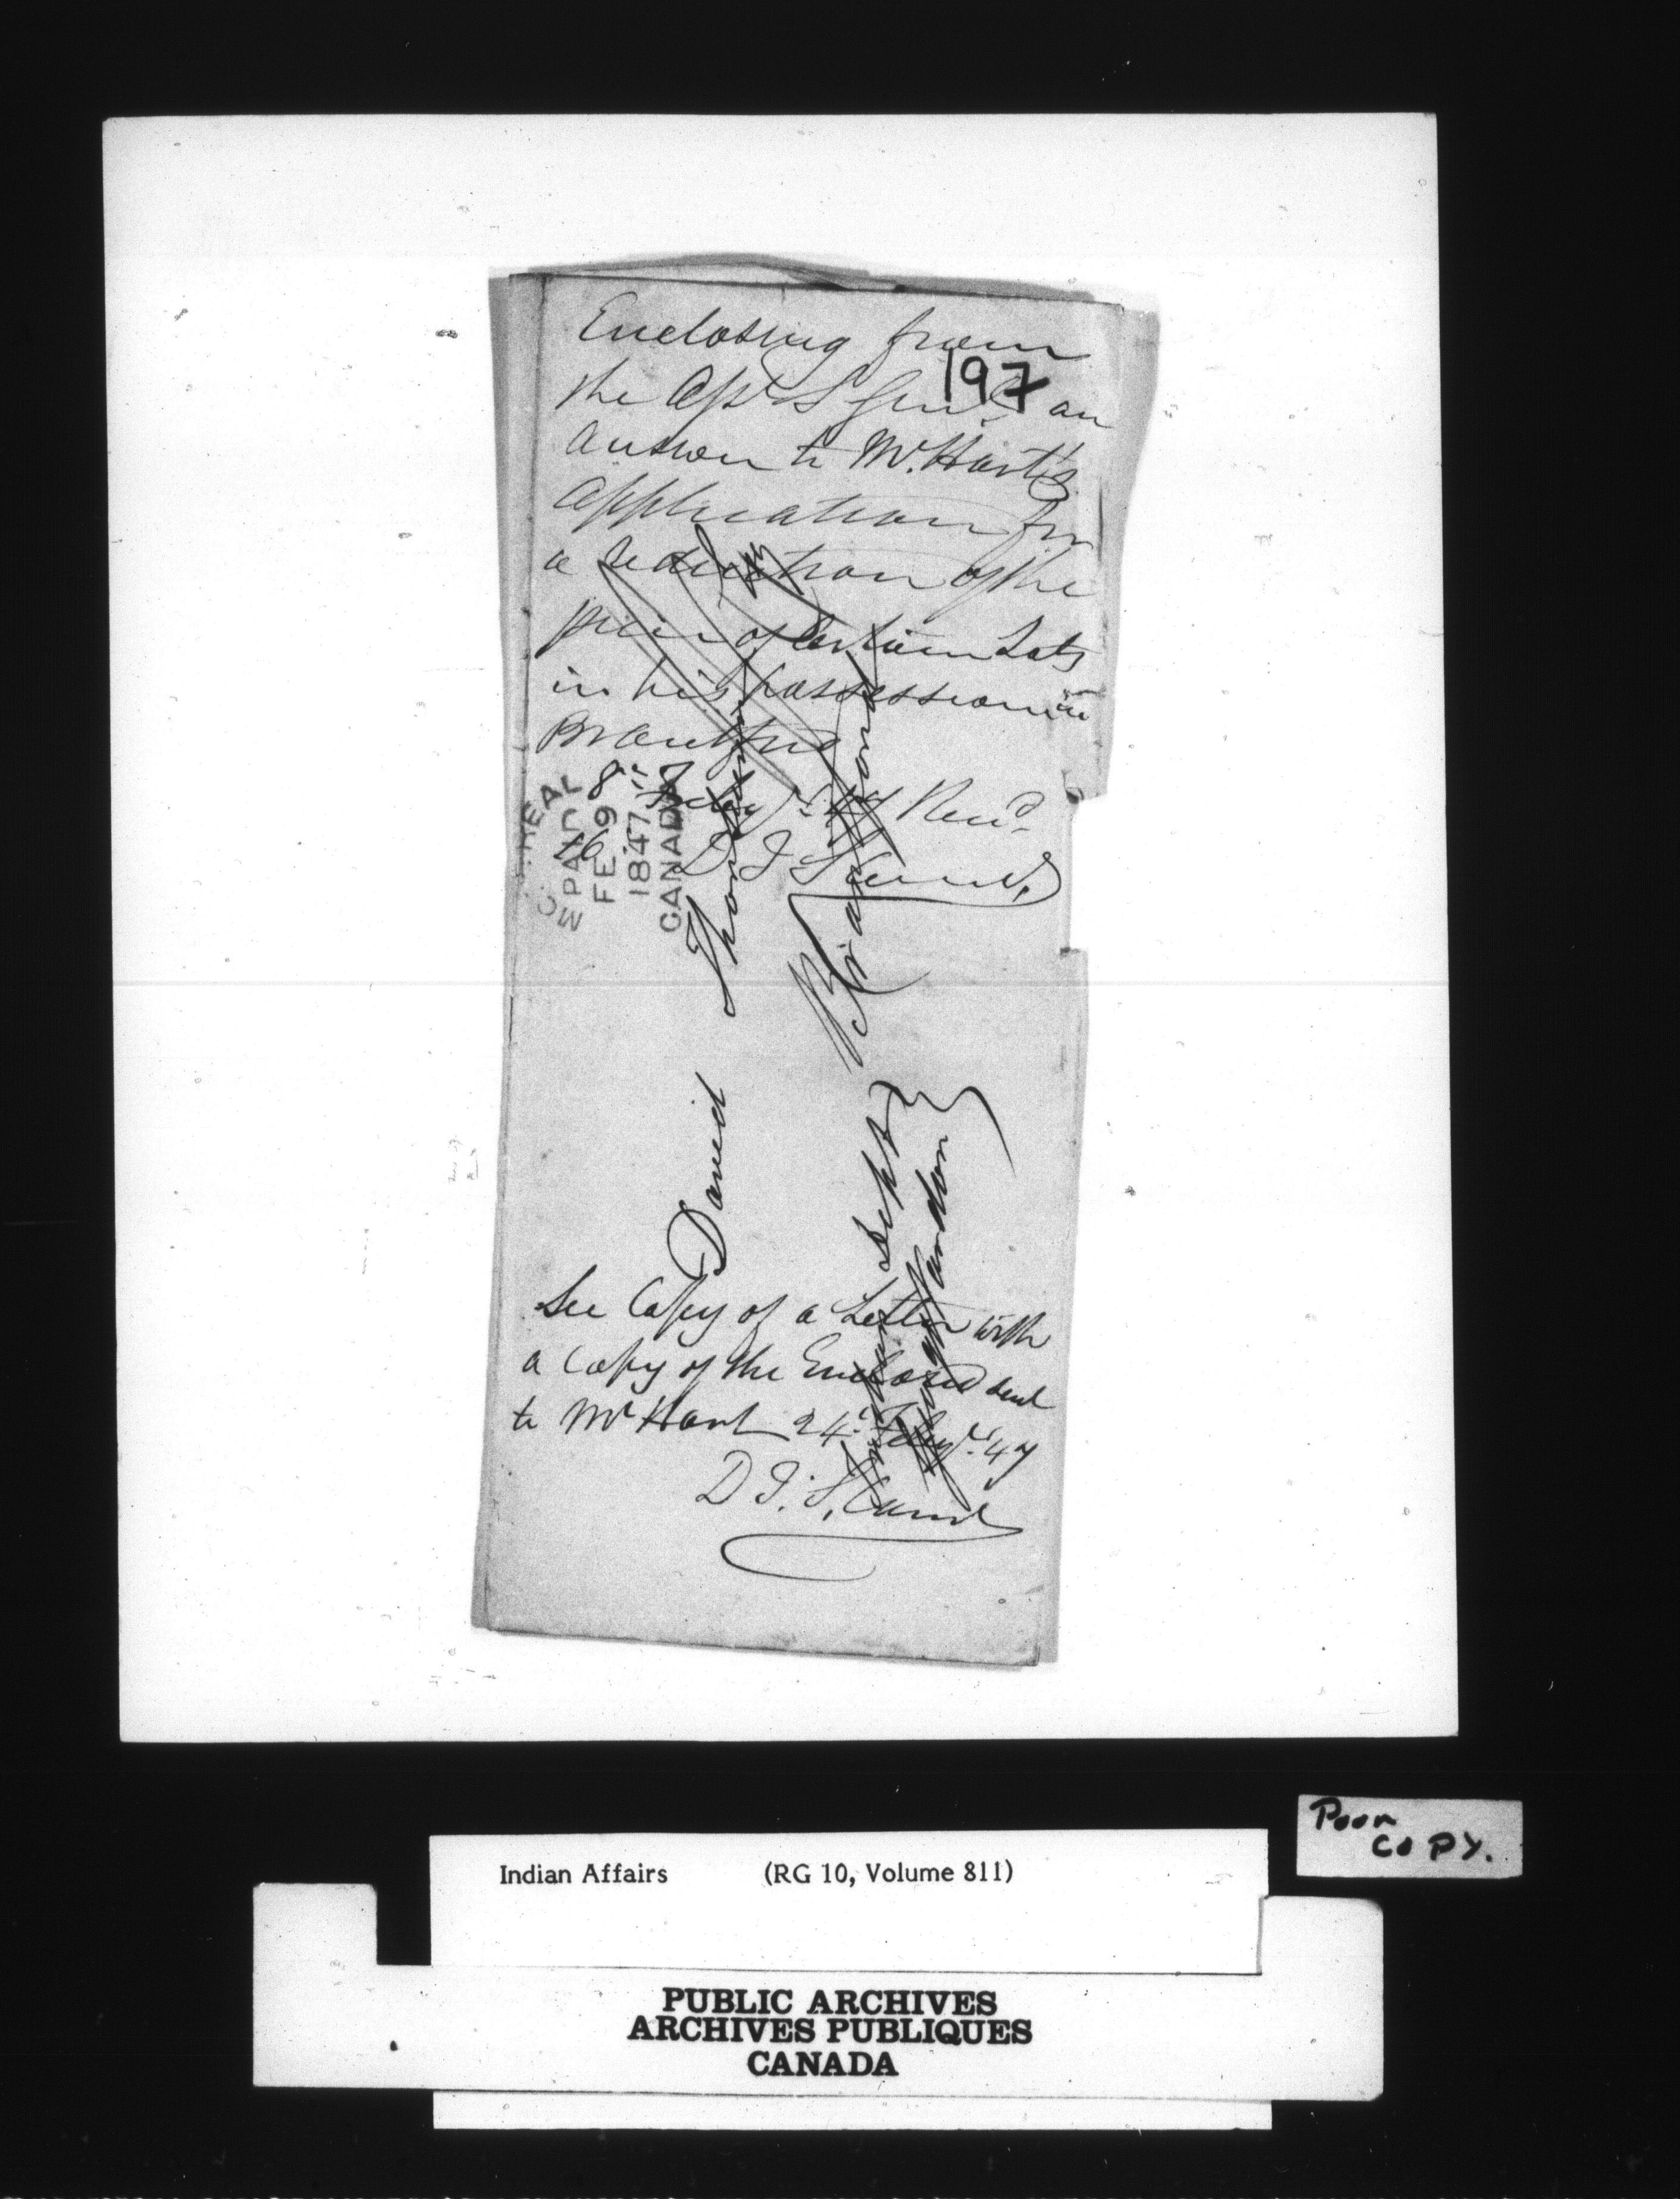 Enclosing from
197
the Asst S Genl an
answer to Mr. Hart's
application for
a reduction of the
price of certain Lots
in his possession in
Brantford
8th Feby '47 Recd
MONTREAL
PAID
FE 9
1847
CANADA
David Thorburn
Brantford
Indian Dept
See Copy of a Letter with
a Copy of the Enclosed sent
to Mr Hart 24th Feby '47
Poor
COPY.
Indian Affairs (RG 10, Volume 811)
PUBLIC ARCHIVES
ARCHIVES PUBLIQUES
CANADA